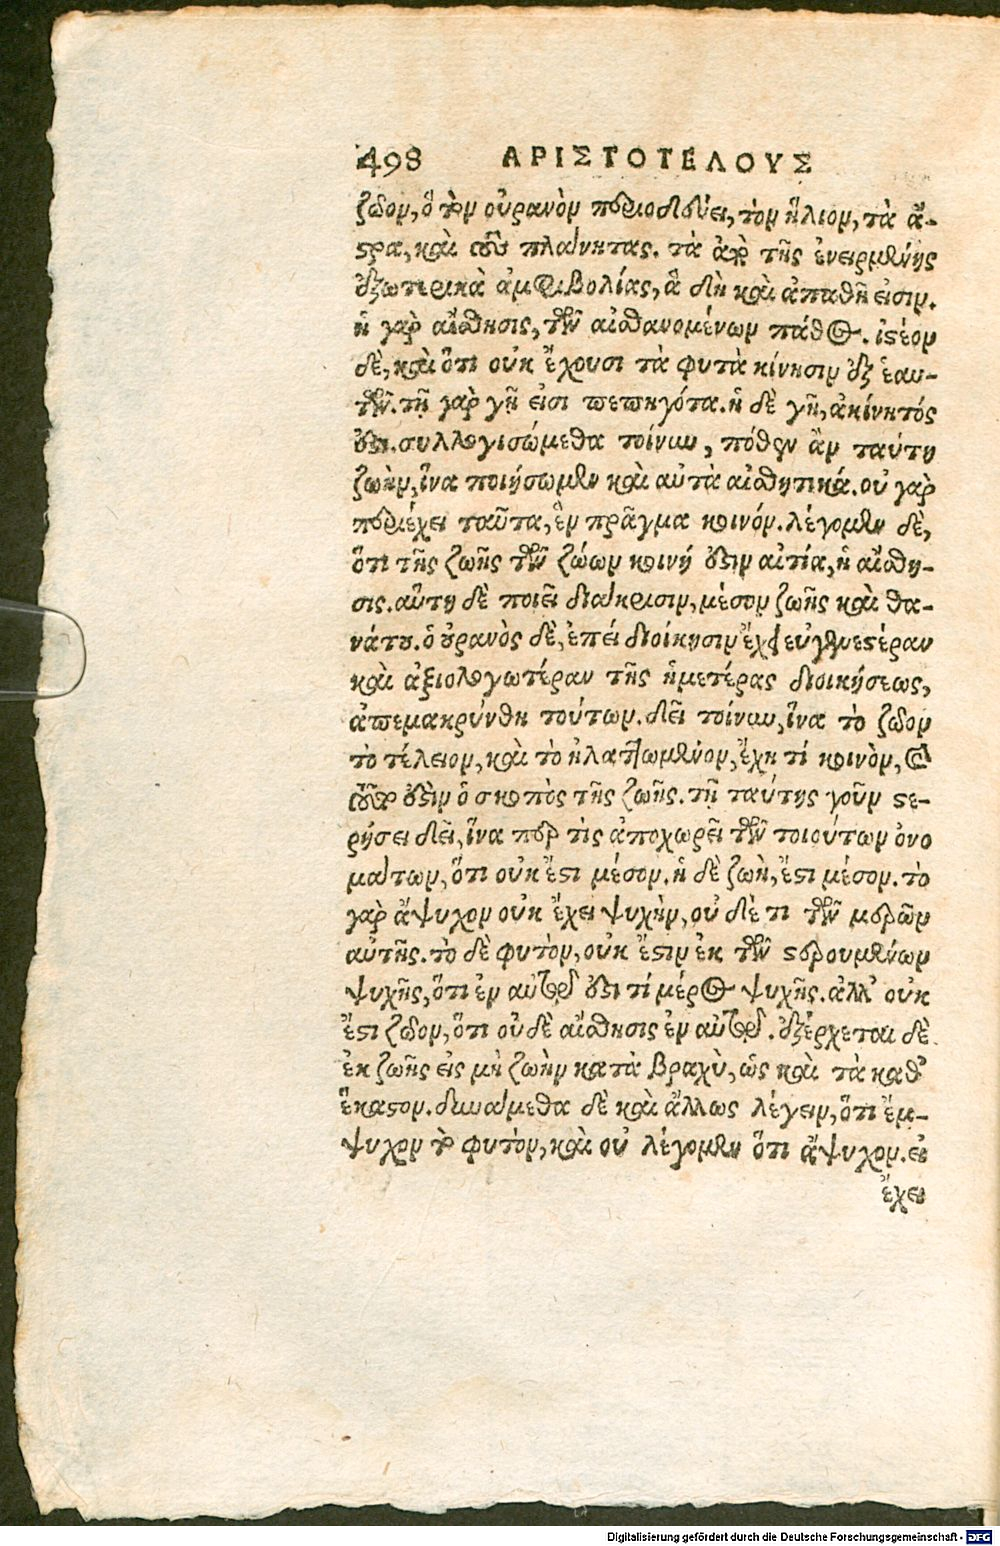 498 ΑΡΙΣΤΟΤΕΛΟΥΣ
ζῶον, ὃ τὸν οὐρανὸν περιοδεύει, τὸν ἥλιον, τὰ ἄ-
ϛρα, καὶ τοὺς πλάνητας. τὰ ἄρα τῆς ἐνειρμένης
ἐξωτερικὰ ἀμφιβολίας, ἃ δὴ καὶ ἀπαθῆ εἰσιν.
ἡ γὰρ αἴσθησις, τῶν αἰσθανομένων πάθος. ἰϛέον
δὲ, καὶ ὅτι οὐκ ἔχουσι τὰ φυτὰ κίνησιν ἐξ ἑαυ-
τῶν. τῇ γὰρ γῇ εἰσι πεπηγότα. ἡ δὲ γῆ, ἀκίνητός
ἐϛι. συλλογισώμεθα τοίνυν, πόθεν ἂν ταύτῃ
ζωὴν, ἵνα ποιήσωμεν καὶ αὐτὰ αἰσθητικά. οὐ γὰρ
περιέχει ταῦτα, ἓν πρᾶγμα κοινόν. λέγομεν δὲ,
ὅτι τῆς ζωῆς τῶν ζώων κοινή ἐϛιν αἰτία, ἡ αἴσθη-
σις. αὕτη δὲ ποιεῖ διάκρισιν, μέσον ζωῆς καὶ θα-
νάτου. ὁ οὐρανὸς δὲ, ἐπεὶ διοίκησιν ἔχει εὐγενεϛέραν
καὶ ἀξιολογωτέραν τῆς ἡμετέρας διοικήσεως,
ἀπεμακρύνθη τούτων. δεῖ τοίνυν, ἵνα τὸ ζῶον
τὸ τέλειον, καὶ τὸ ἠλαττωμένον, ἔχῃ τί κοινὸν, καὶ
τοῦτο ἐϛὶν ὁ σκοπὸς τῆς ζωῆς. τῇ ταύτης γοῦν ϛε-
ρήσει δεῖ, ἵνα περ τὶς ἀποχωρεῖ τῶν τοιούτων ὀνο
μάτων, ὅτι οὐκ ἔϛι μέσον. ἡ δὲ ζωὴ, ἔϛι μέσον. τὸ
γὰρ ἄψυχον οὐκ ἔχει ψυχὴν, οὐ δέ τι τῶν μερῶν
αὐτῆς. τὸ δὲ φυτὸν, οὐκ ἔϛιν ἐκ τῶν ϛερουμένων
ψυχῆς, ὅτι ἐν αὐτῷ ἐϛι τί μέρος ψυχῆς. ἀλλ' οὐκ
ἔϛι ζῶον, ὅτι οὐ δὲ αἴσθησις ἐν αὐτῷ. ἐξέρχεται δὲ
ἐκ ζωῆς εἰς μὴ ζωὴν κατὰ βραχὺ, ὡς καὶ τὰ καθ'
ἕκαϛον. δυνάμεθα δὲ καὶ ἄλλως λέγειν, ὅτι ἔμ-
ψυχον τὸ φυτὸν, καὶ οὐ λέγομεν ὅτι ἄψυχον. εἰ
ἔχει
Digitalisierung gefördert durch die Deutsche Forschungsgemeinschaft - DFG